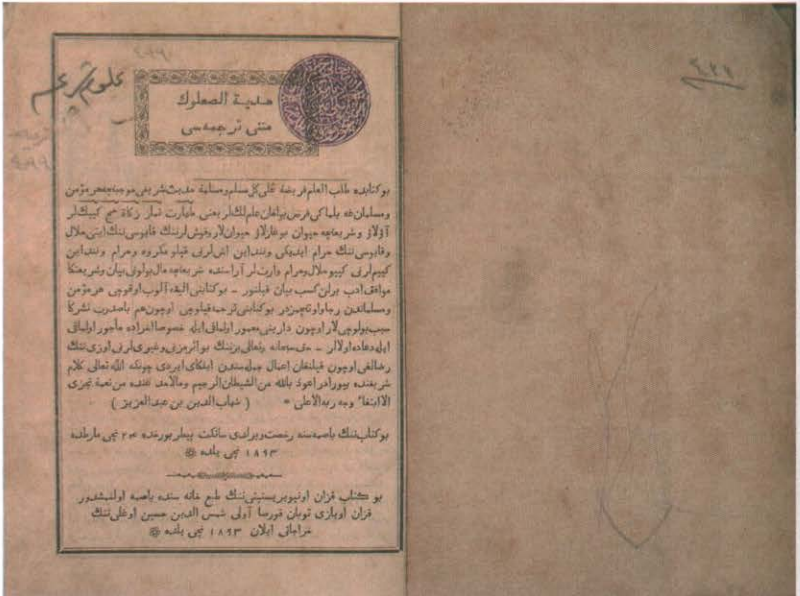 هدية الصعلوك
متنی ترجمه سی
بو كتابده طلب العلم فريضة على كل مسلم ومسلمة حديث شريفی موجبچه هر مؤمن
ومسلمان غه بلماكی فرض بولغان علم لك لر يعنی طهارت نماز زكاة حج كبيك لر
آولاو وشريعتچه حيوان بوغازلاو حيوان لار وقوش لرننك قايوسی ننك ايتی حلال
وقايوسی ننك حرام ايديكی وتننداين اش لرنی قيلو مكروه وحرام وتننداين
كييم لرنی كييو حلال وحرام وارث لر آراسنده شريعتچه مال بولونی بيان وشريعتكا
موافق ادب برلن كسب بيان قيلنور - بو كتابنی اليغه آلوب اوقوچی هر مؤمن
ومسلماندن رجا اوتنچمزدر بو كتابنی ترجمه قيلوچی اوچون هم باصدرب نشر كا
سبب بولوچی لار اوچون دارينی معمور اولماقی ايله خصوصا اخراده مأجور اولماقی
ايله دعاده اولالر - حق سبحانه وتعالی بزننك بو اثرمزنی وغيری لرنی اوزی ننك
رضالغی اوچون قيلنغان اعمال جمله سندن ايتكای ايردی چونكه الله تعالی كلام
شريفنده بيورادر اعوذ بالله من الشيطان الرجيم وما لاحد عنده من نعمة تجزی
الا ابتغاء وجه ربه الاعلی * ( شهاب الدين بن عبد العزيز )
بو كتاب ننك باصمه سنه رخصت ويرلدی سانكت پيطربورخده ٢٠ نچی مارطده
١٨٩٣ نچی يلده
بو كتاب قزان اونيويرسيتيتی ننك طبع خانه سنده باصمه اولنمشدور
قزان اويازی توبان قورصا آولی شمس الدين حسين اوغلی ننك
خراجاتی ايلان ١٨٩٣ نچی يلده